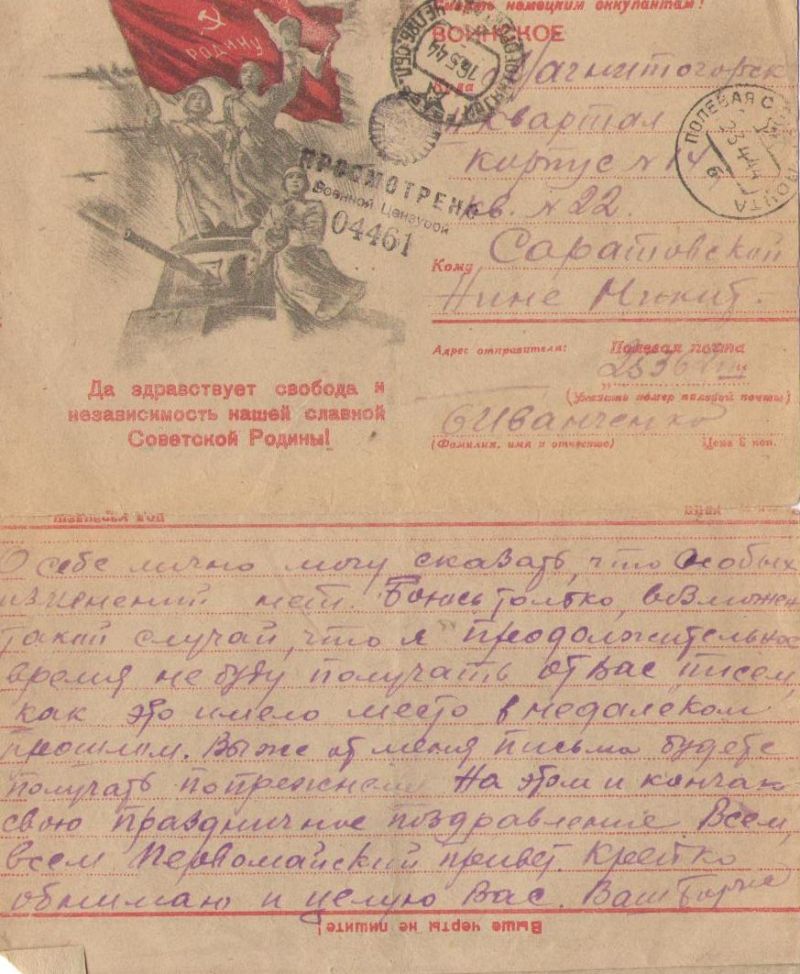 Смерть немецким оккупантам!
ВОИНСКОЕ
РОДИНУ
16 5 44
Куда Магнитогорск
ПОЛЕВАЯ ПОЧТА
23 4 44
квартал
корпус №
кв. № 22.
ПРОСМОТРЕНО
Военной Цензурой
04461
Кому Саратовской
Нине Никит.
Адрес отправителя: Полевая почта
(Указать номер полевой почты)
Б Иванченко
(Фамилия, имя и отчество) Цена 5 коп.
Да здравствует свобода и
независимость нашей славной
Советской Родины!
О себе лично могу сказать, что особых
изменений нет. Боюсь только, возможен
такой случай, что я продолжительное
время не буду получать от Вас писем,
как это имело место в недалеком
прошлом. Вы же от меня письма будете
получать попрежнему. На этом и кончаю
свою праздничное поздравление Всем,
всем Первомайский привет. Крепко
обнимаю и целую Вас. Ваш Борис
Выше черты не пишите!